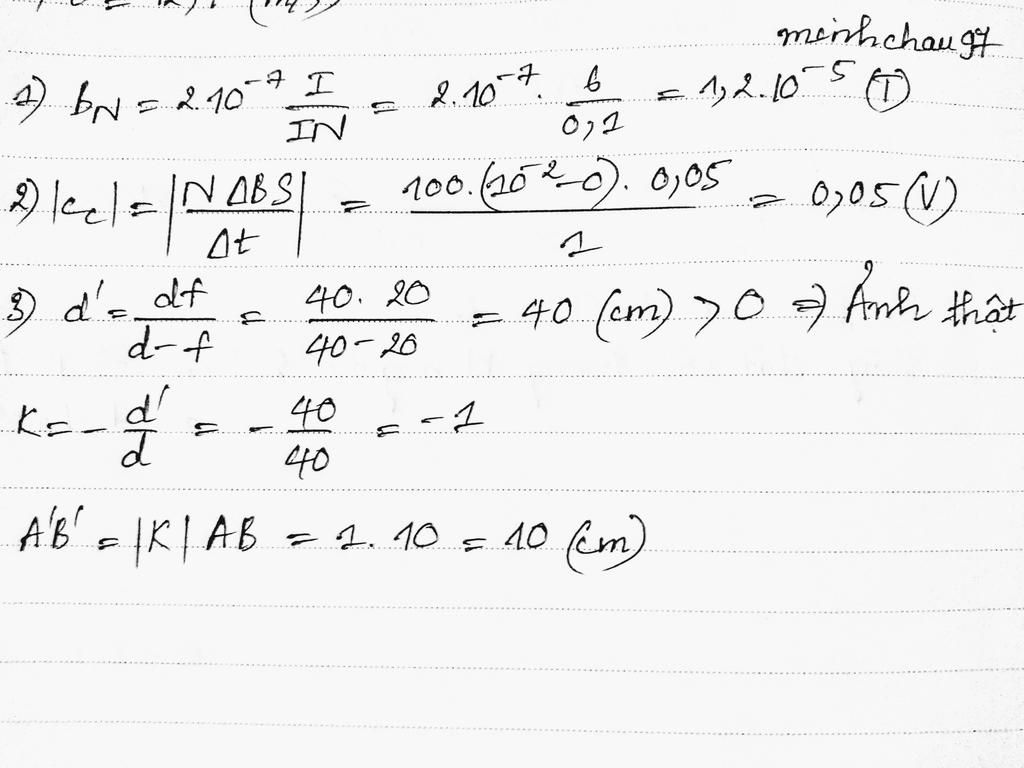 minhchau97
1) BN = 2.10^-7 I/IN = 2.10^-7 . 6/0,1 = 1,2.10^-5 (T)
2) |ec| = |NΔBS/Δt| = 100.(10^-2-0). 0,05/1 = 0,05 (V)
3) d' = df/d-f = 40. 20/40-20 = 40 (cm) > 0 => Ảnh thật
K = - d'/d = - 40/40 = -1
A'B' = |K| AB = 1. 10 = 10 (cm)